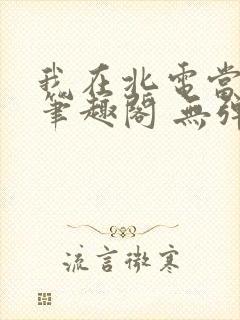 我在北電當
筆趣閣 無彈
流言微寒